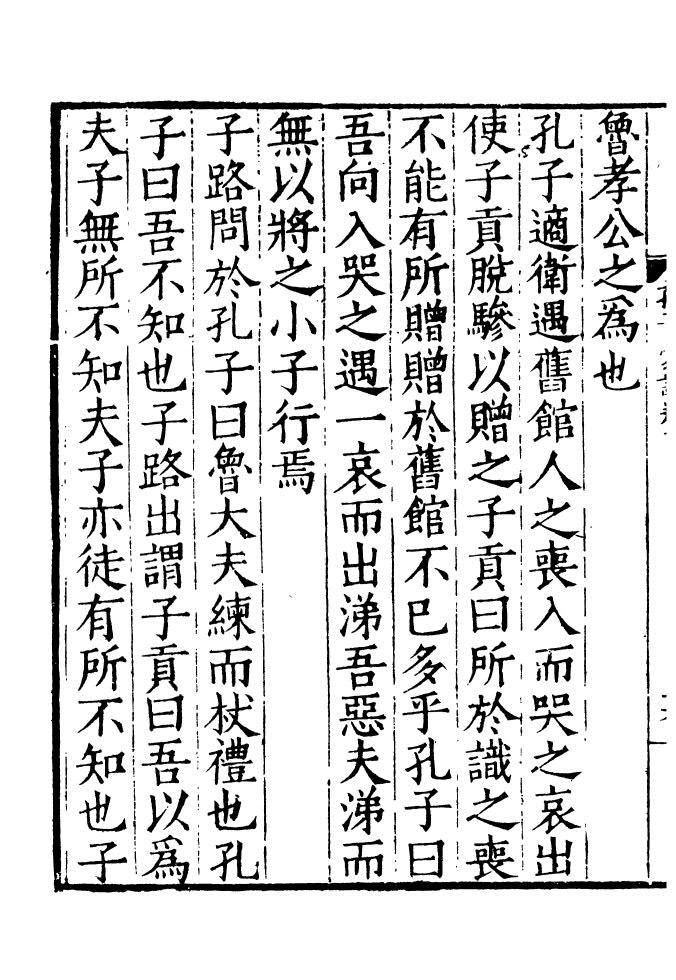 魯孝公之爲也
孔子適衛遇舊館人之喪入而哭之哀出
使子貢脫驂以贈之子貢曰所於識之喪
不能有所贈贈於舊館不已多乎孔子曰
吾向入哭之遇一哀而出涕吾惡夫涕而
無以將之小子行焉
子路問於孔子曰魯大夫練而杖禮也孔
子曰吾不知也子路出謂子貢曰吾以爲
夫子無所不知夫子亦徒有所不知也子